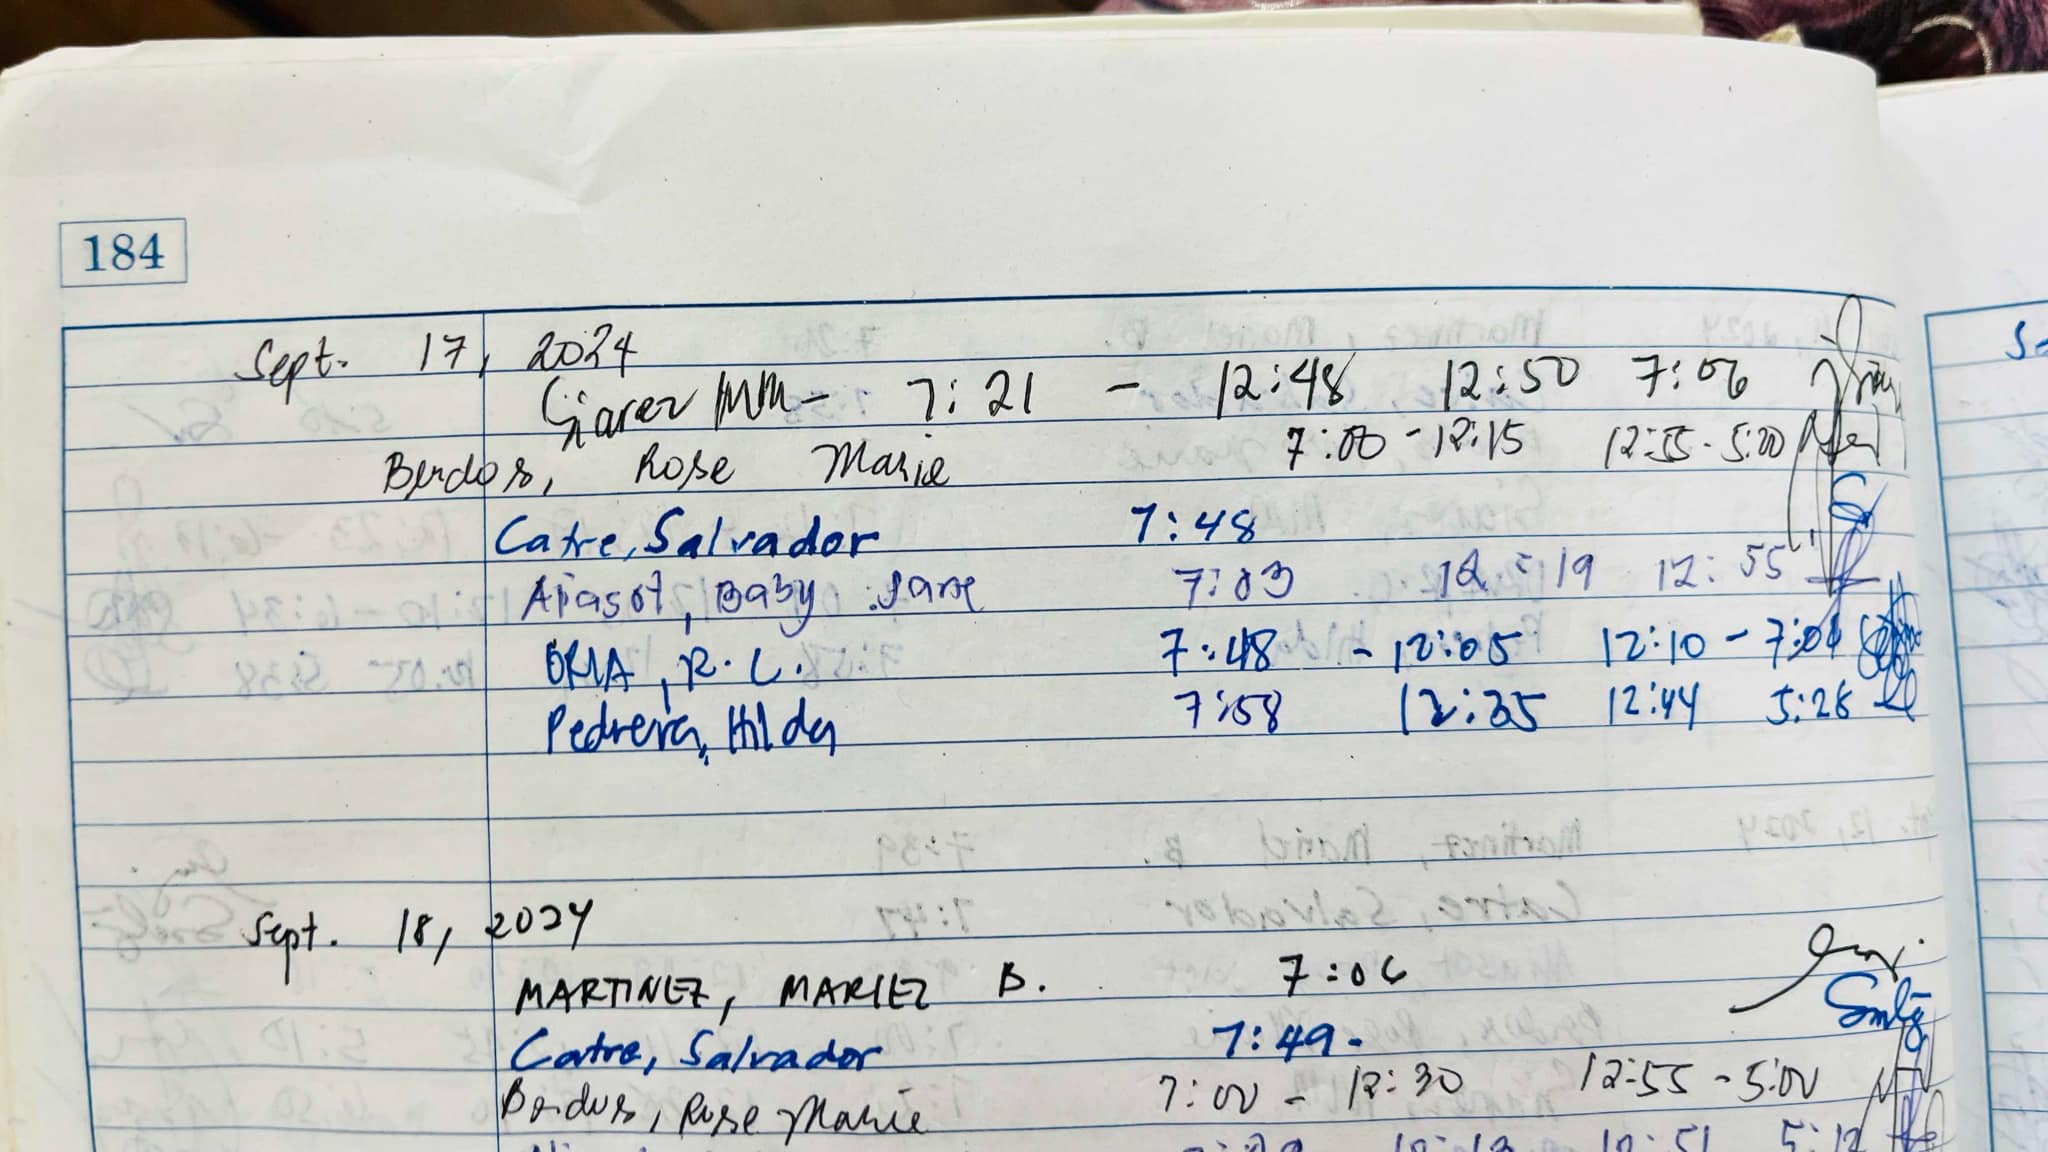 184
Sept. 17, 2024
Giarez MM - 7:21 - 12:48 12:50 7:06
Berdos, Rose Marie 7:00 - 12:15 12:55 - 5:00
Catre, Salvador 7:48
Apasot, Baby Jane 7:03 12:19 12:55
ORIA, R. L. 7:48 - 12:05 12:10 - 7:01
Pedrera, Hilda 7:58 12:35 12:44 5:28
Sept. 18, 2024
MARTINEZ, MARIEL B. 7:06
Catre, Salvador 7:49-
Berdos, Rose Marie 7:00 - 12:30 12:55 - 5:00
12:51 5:12